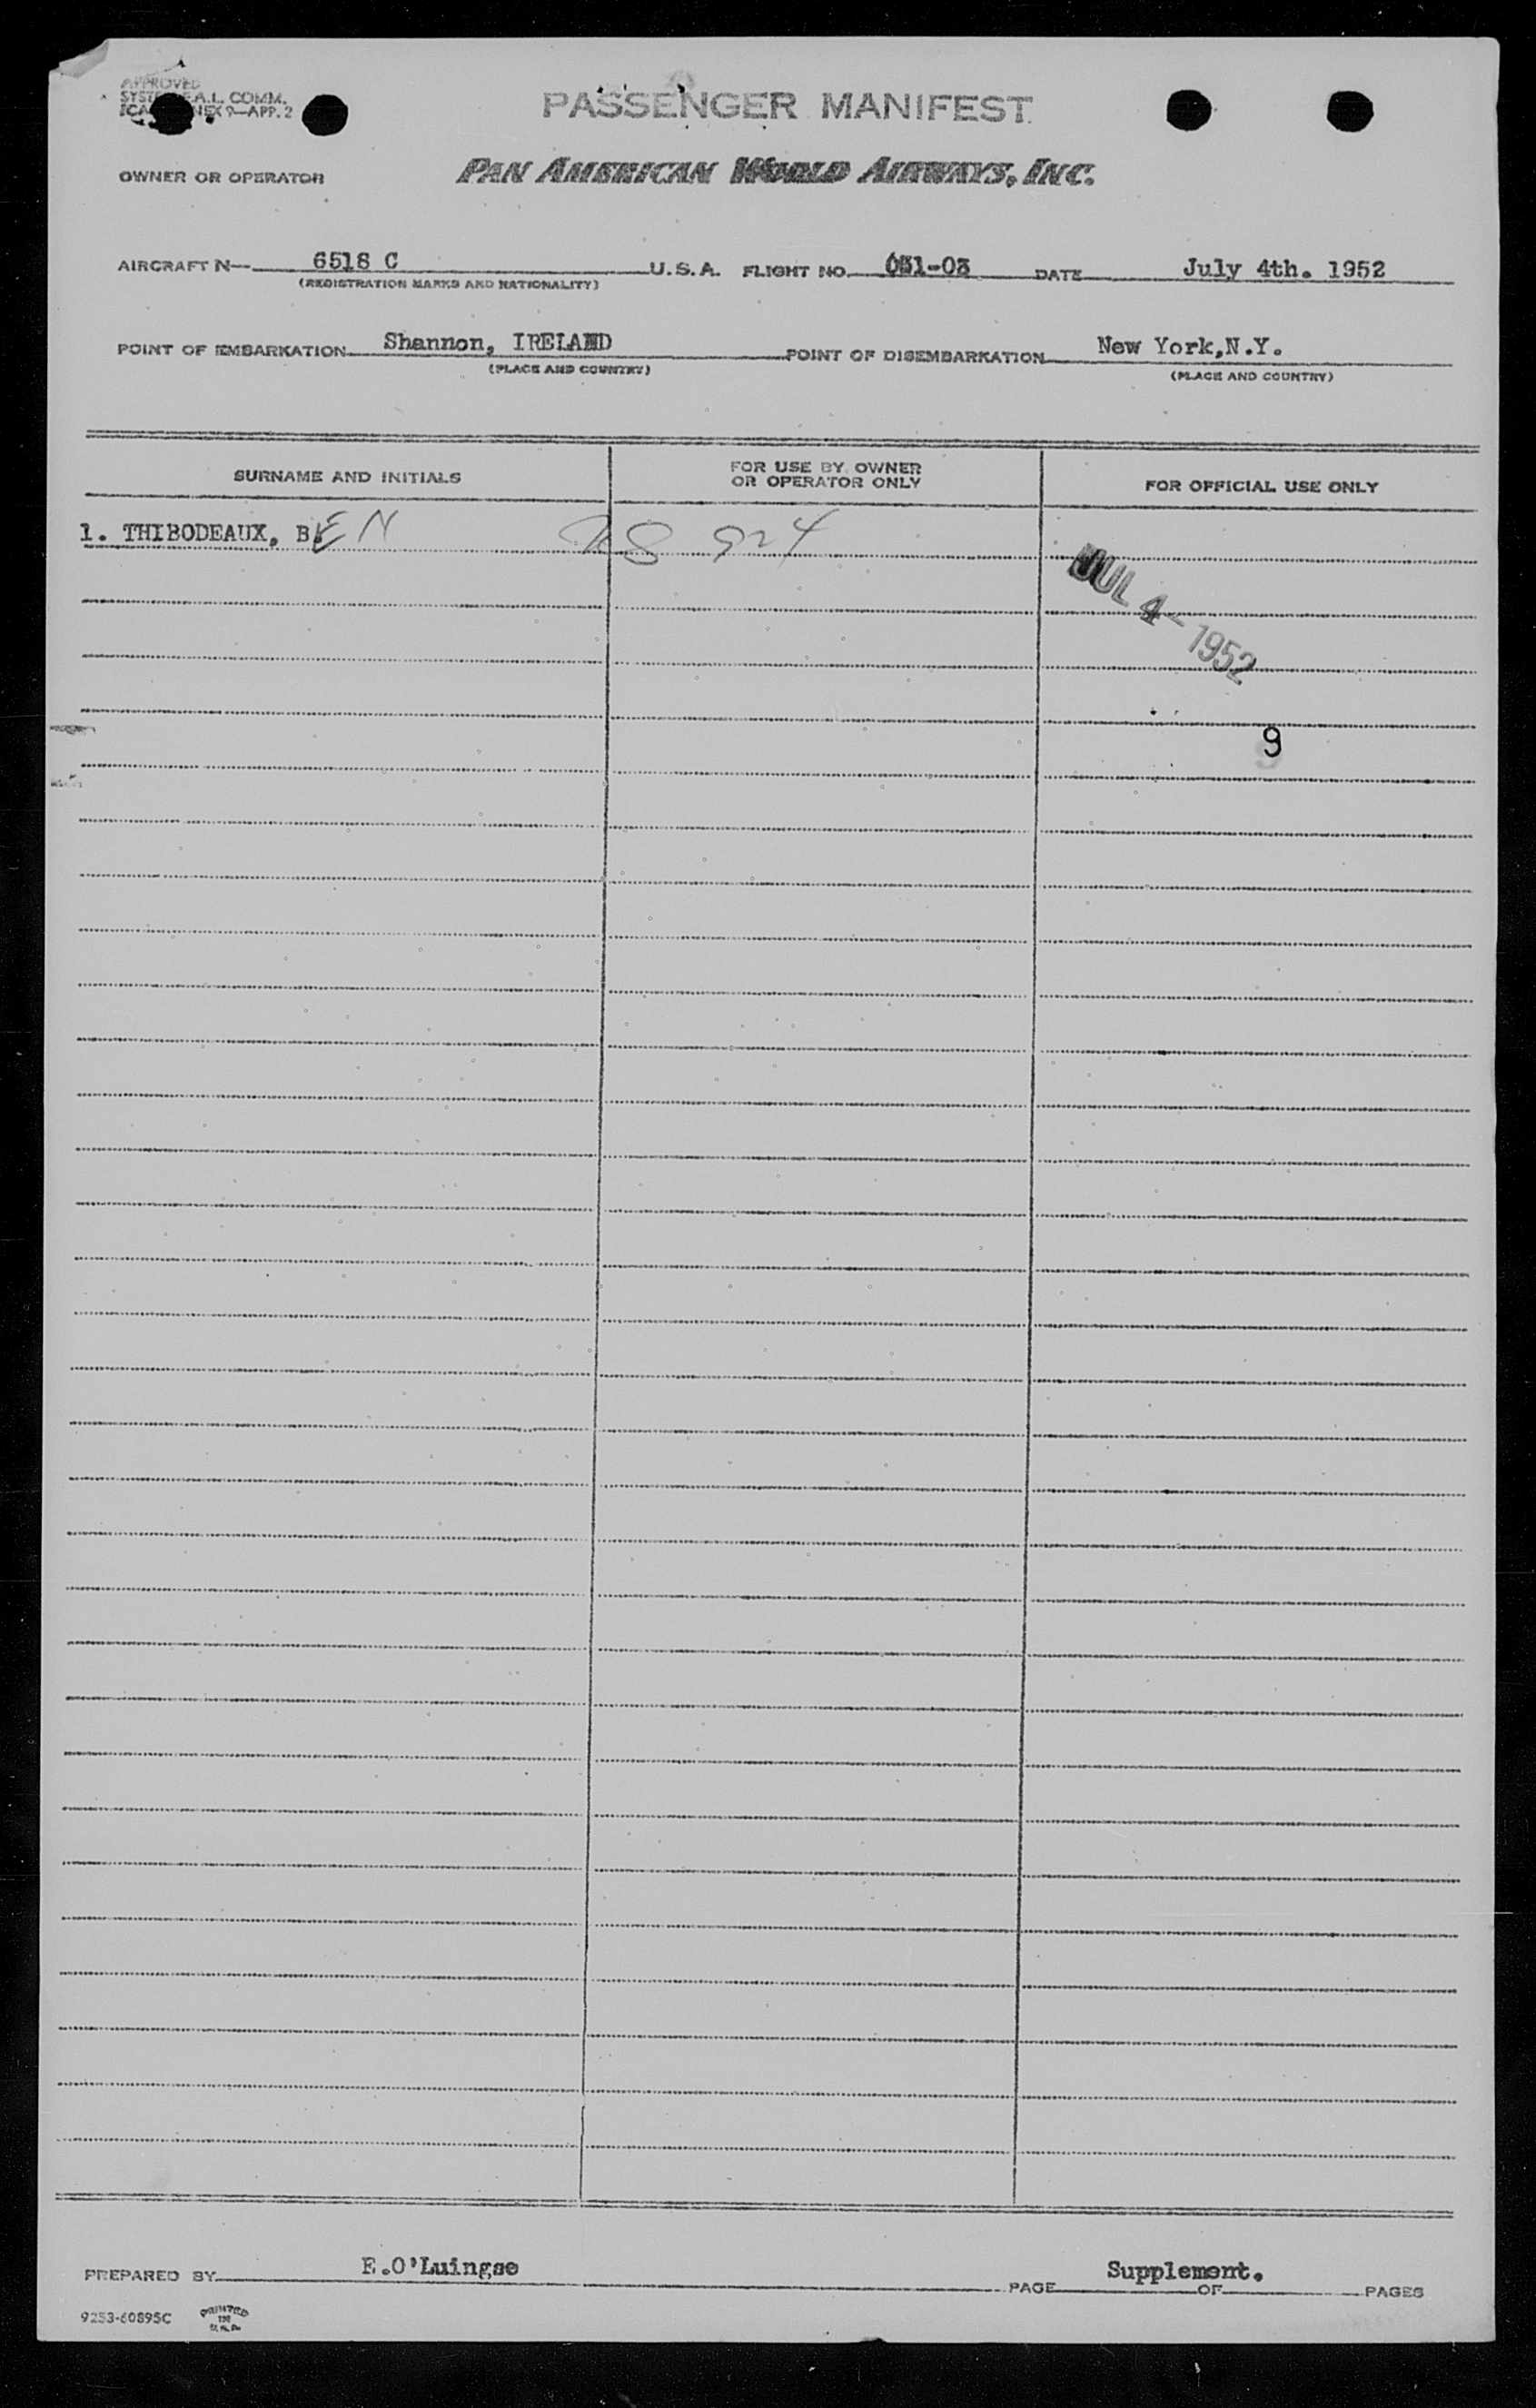 APPROVED
A.L. COMM.
9—APP. 2
PASSENGER MANIFEST
OWNER OR OPERATOR PAN AMERICAN WORLD AIRWAYS, INC.
AIRCRAFT N— 6518 C U.S.A. FLIGHT NO. 051-03 DATE July 4th. 1952
(REGISTRATION MARKS AND NATIONALITY)
POINT OF EMBARKATION Shannon, IRELAND POINT OF DISEMBARKATION New York,N.Y.
(PLACE AND COUNTRY) (PLACE AND COUNTRY)
SURNAME AND INITIALS
FOR USE BY OWNER
OR OPERATOR ONLY
FOR OFFICIAL USE ONLY
1. THIBODEAUX, BEN 924
JUL 4 - 1952
9
PREPARED BY E.O'Luingse PAGE Supplement. OF PAGES
9253-60895C
PRINTED
IN
U.S.A.